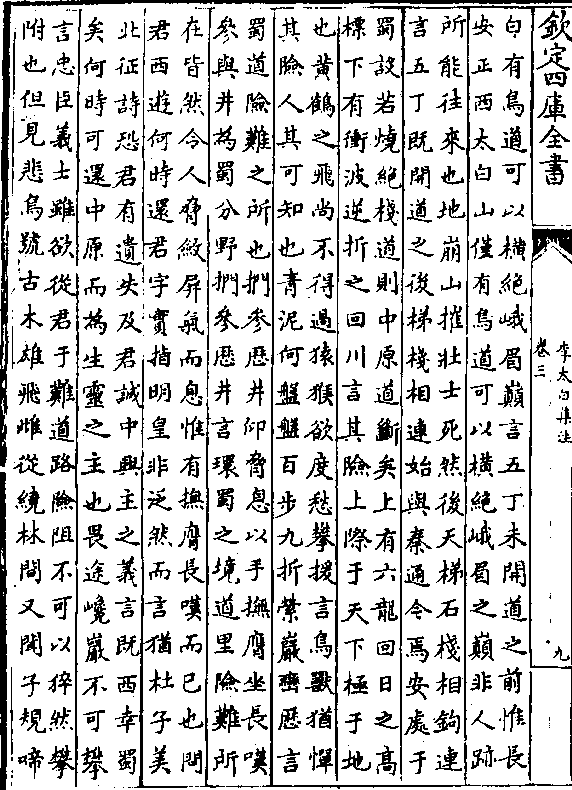 欽定四庫全書
李太白集注
卷三
九
白有鳥道可以橫絶峨眉巔言五丁未開道之前惟長
安正西太白山僅有鳥道可以橫絶峨眉之巔非人跡
所能往來也地崩山摧壯士死然後天梯石棧相鉤連
言五丁既開道之後梯棧相連始與秦通今焉安處于
蜀設若燒絶棧道則中原道斷矣上有六龍回日之高
標下有衝波逆折之回川言其險上際于天下極于地
也黄鶴之飛尚不得過猿猴欲度愁攀援言鳥獸猶憚
其險人其可知也青泥何盤盤百步九折縈巖巒歴言
蜀道險難之所也捫參歴井仰脅息以手撫膺坐長嘆
參與井為蜀分野捫參歴井言環蜀之境道里險難所
在皆然令人脅斂屏氣而息惟有撫膺長嘆而已也問
君西遊何時還君字實指明皇非泛然而言猶杜子美
北征詩恐君有遺失及君誠中興主之義言既西幸蜀
矣何時可還中原而為生靈之主也畏途巉巖不可攀
言忠臣義士雖欲從君于難道路險阻不可以猝然攀
附也但見悲鳥號古木雄飛雌從繞林間又聞子規啼